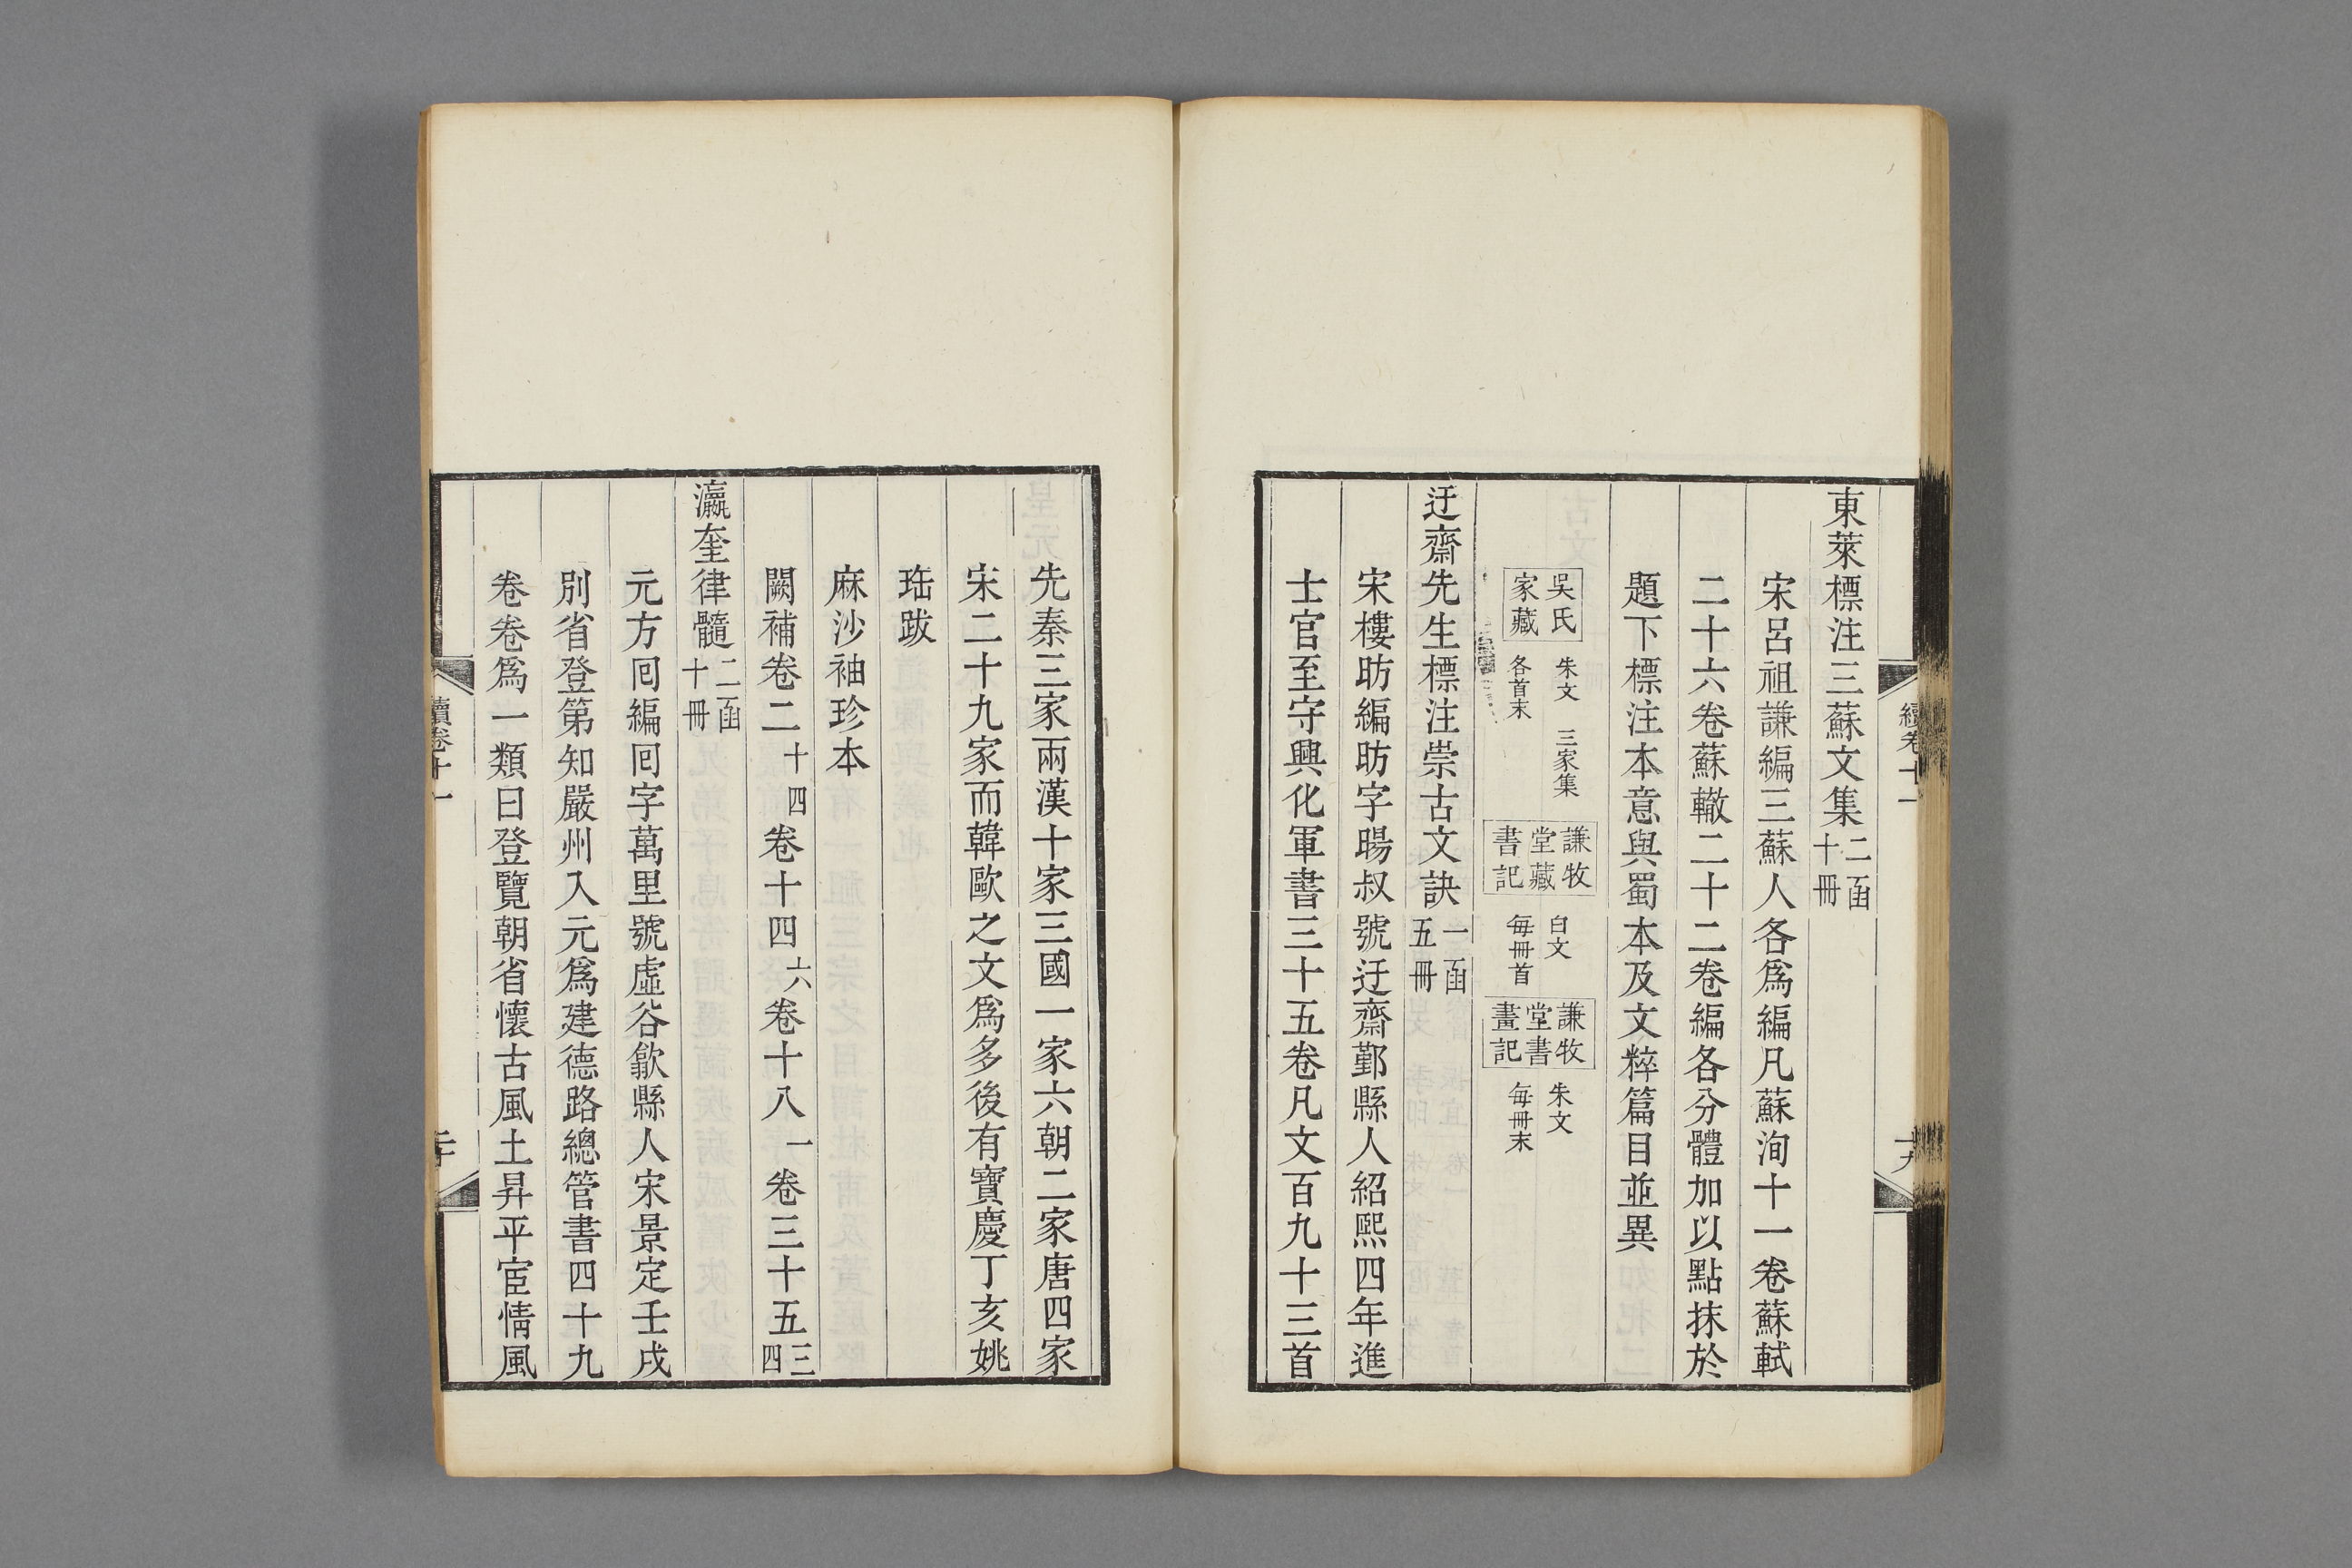 東萊標注三蘇文集二函十冊
宋呂祖謙編三蘇人各爲編凡蘇洵十一卷蘇軾
二十六卷蘇轍二十二卷編各分體加以點抹於
題下標注本意與蜀本及文粹篇目並異
吳氏家藏 朱文各首末 三家集 謙牧堂藏書記 白文每冊首 謙牧堂書畫記 朱文每冊末
迂齋先生標注崇古文訣一函五冊
宋樓昉編昉字暘叔號迂齋鄞縣人紹熙四年進
士官至守興化軍書三十五卷凡文百九十三首
續卷十一
十九
先秦三家兩漢十家三國一家六朝二家唐四家
宋二十九家而韓歐之文爲多後有寶慶丁亥姚
珤跋
麻沙袖珍本
闕補卷二十四卷十四六卷十八一卷三十五三四
瀛奎律髓二函十冊
元方回編回字萬里號虛谷歙縣人宋景定壬戌
別省登第知嚴州入元爲建德路總管書四十九
卷卷爲一類曰登覽朝省懷古風土昇平宦情風
續卷十一
二十